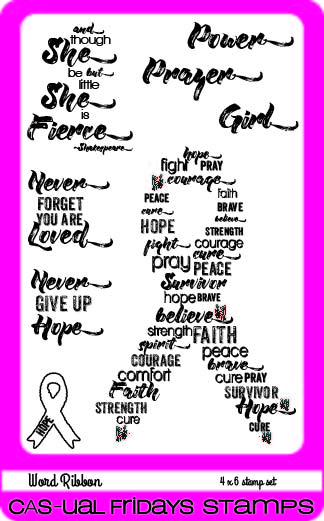 and
though
She
be but
little
She
is
Fierce
~Shakespeare
Power
Prayer
Girl
Never
FORGET
YOU ARE
Loved
Never
GIVE UP
Hope
HOPE
hope
fight PRAY
courage
PEACE
faith
cure
BRAVE
HOPE
believe
STRENGTH
fight
courage
cure
pray
PEACE
Survivor
hope BRAVE
believe
strength FAITH
spirit
peace
COURAGE
brave
comfort
cure PRAY
Faith
SURVIVOR
STRENGTH
Hope
cure
CURE
Word Ribbon
4 x 6 stamp set
CAS-UAL FRIDAYS STAMPS